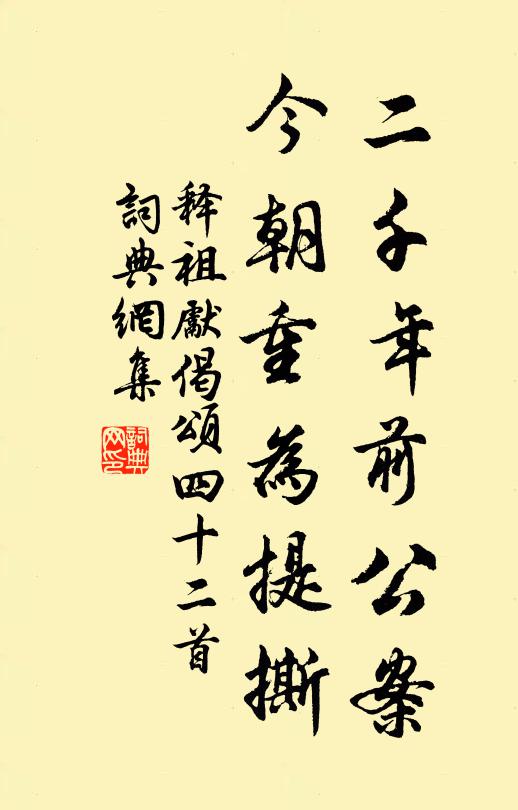 二千年前公案
今朝重為提撕
释祖獻偈頌四十二首
詞典網集
詞典
网印